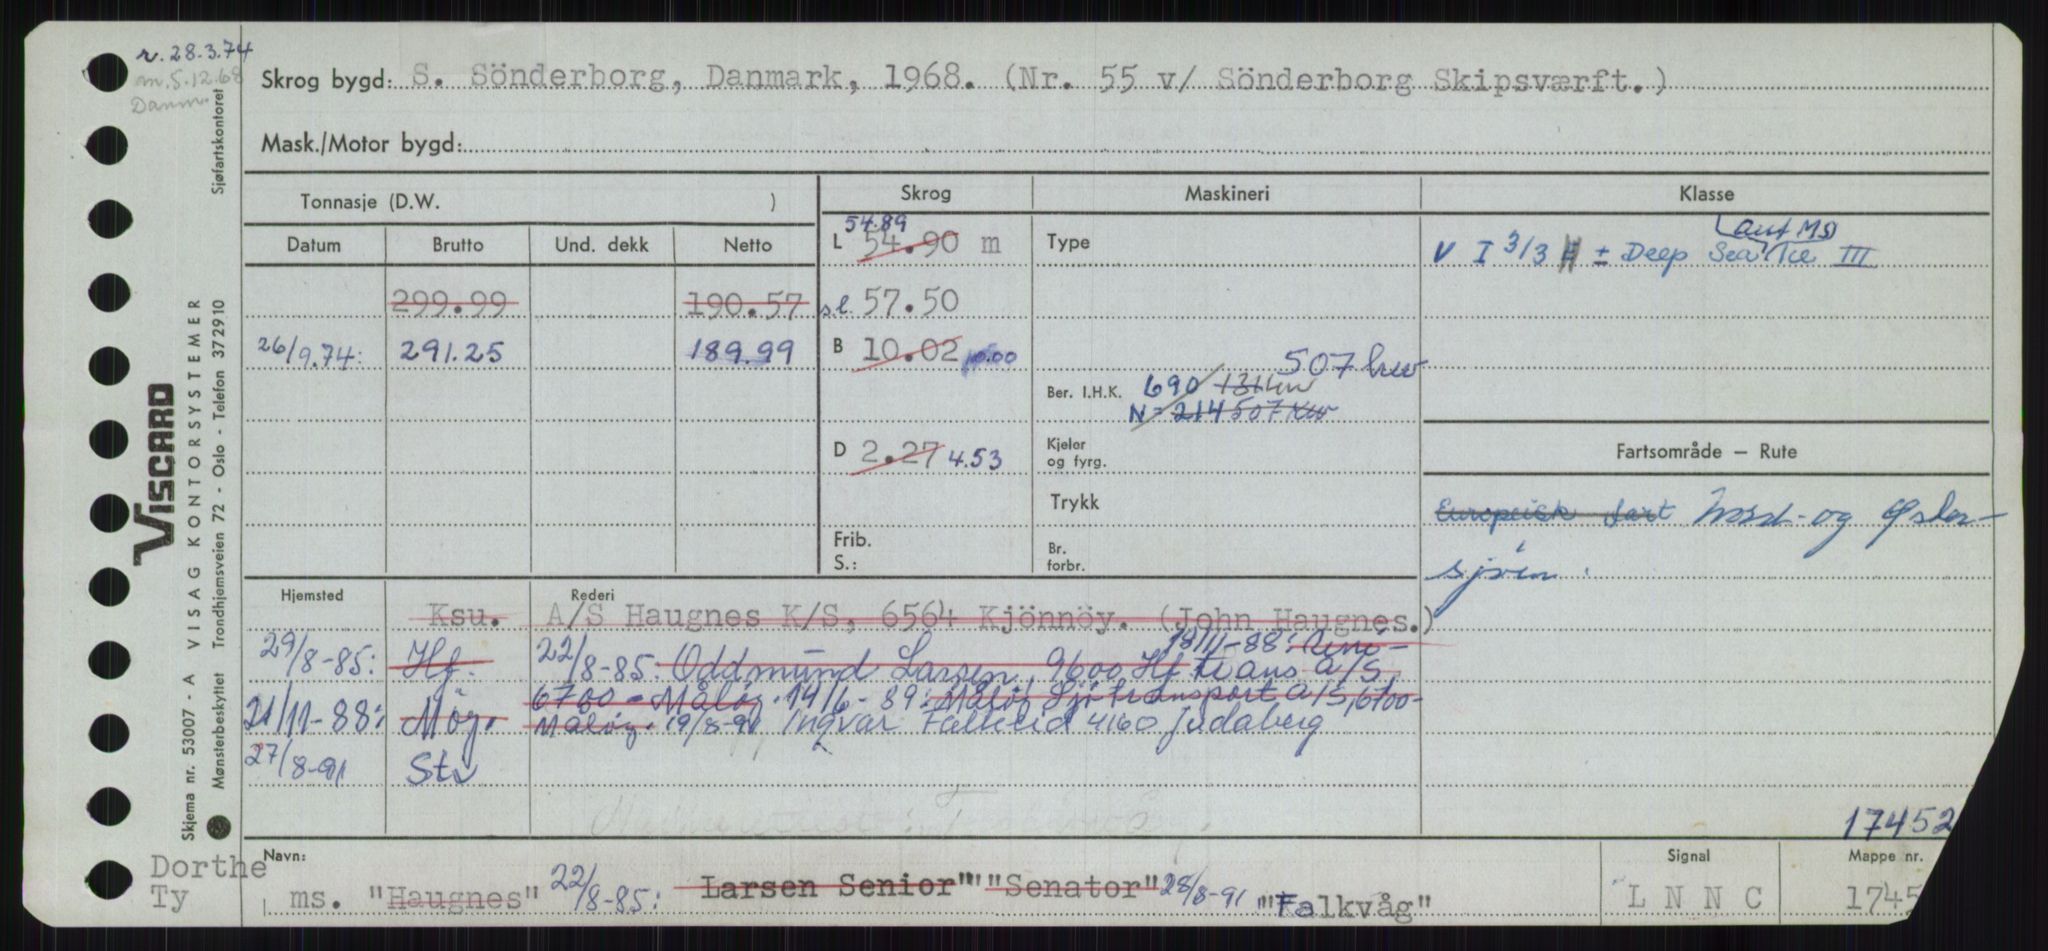 r. 28.3.74
m. 5.12.68
Danm.
Skrog bygd: S. Sönderborg, Danmark, 1968. (Nr. 55 v/ Sönderborg Skipsværft.)
Mask./Motor bygd:
Tonnasje (D.W. )
Skrog
Maskineri
Klasse
Datum
Brutto
Und. dekk
Netto
54.89
L 54.90 m
Type
aut MS
V I 3/3 ± Deep Sea Ice III
299.99
190.57
sl. 57.50
26/9.74:
291.25
189.99
B 10.02 10.00
507 kw
Ber. I.H.K. 690 131 kw
N= 214 507 kw
D 2.27 4.53
Kjeler
og fyrg.
Fartsområde – Rute
Trykk
Europeisk fart Nord- og Øster-
sjøen.
Frib.
S.:
Br.
forbr.
Hjemsted
Rederi
Ksu. A/S Haugnes K/S, 6564 Kjönnöy. (John Haugnes.)
18/11-88:
29/8-85: Hf. 22/8-85: Oddmund Larsen, 9600 Hf. trans A/S,
21/11-88: Møy. 6700 Måløy. 14/6-89: Måløy Sjøtransport A/S, 6700
Måløy. 19/8-91 Ingvar Falkeid 4160 Judaberg
27/8-91 Stv
17452
Navn:
Signal
Mappe nr.
Dorthe
Ty
ms. "Haugnes" 22/8-85: Larsen Senior" "Senator" 28/8-91 "Falkvåg"
L N N C
1745
Sjøfartskontoret
VISCARD
VISAG KONTORSYSTEMER
Trondhjemsveien 72 - Oslo - Telefon 372910
Skjema nr. 53007 - A
Mønsterbeskyttet